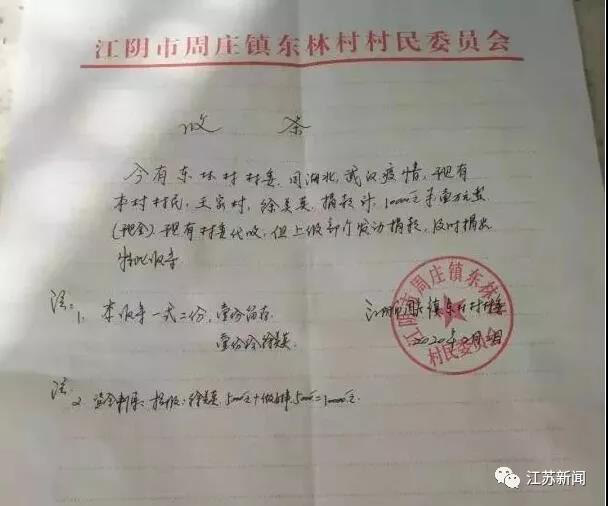 江阴市周庄镇东林村村民委员会
收 条
今有东林村村委，因湖北，武汉疫情，现有
本村村民，王家村，徐美英，捐款计，10000元 壹万元整
(现金)现有村委代收，但上级部门发动捐款，及时捐出
特此收条
注：1、本收条一式二份，壹份留存
江阴市周庄镇东林村村委
壹份给徐美英
2020年 月 日
江阴市周庄镇东林村
村民委员会
注
2 资金 ：徐美英 5000元+ 5000=10000元
江苏新闻